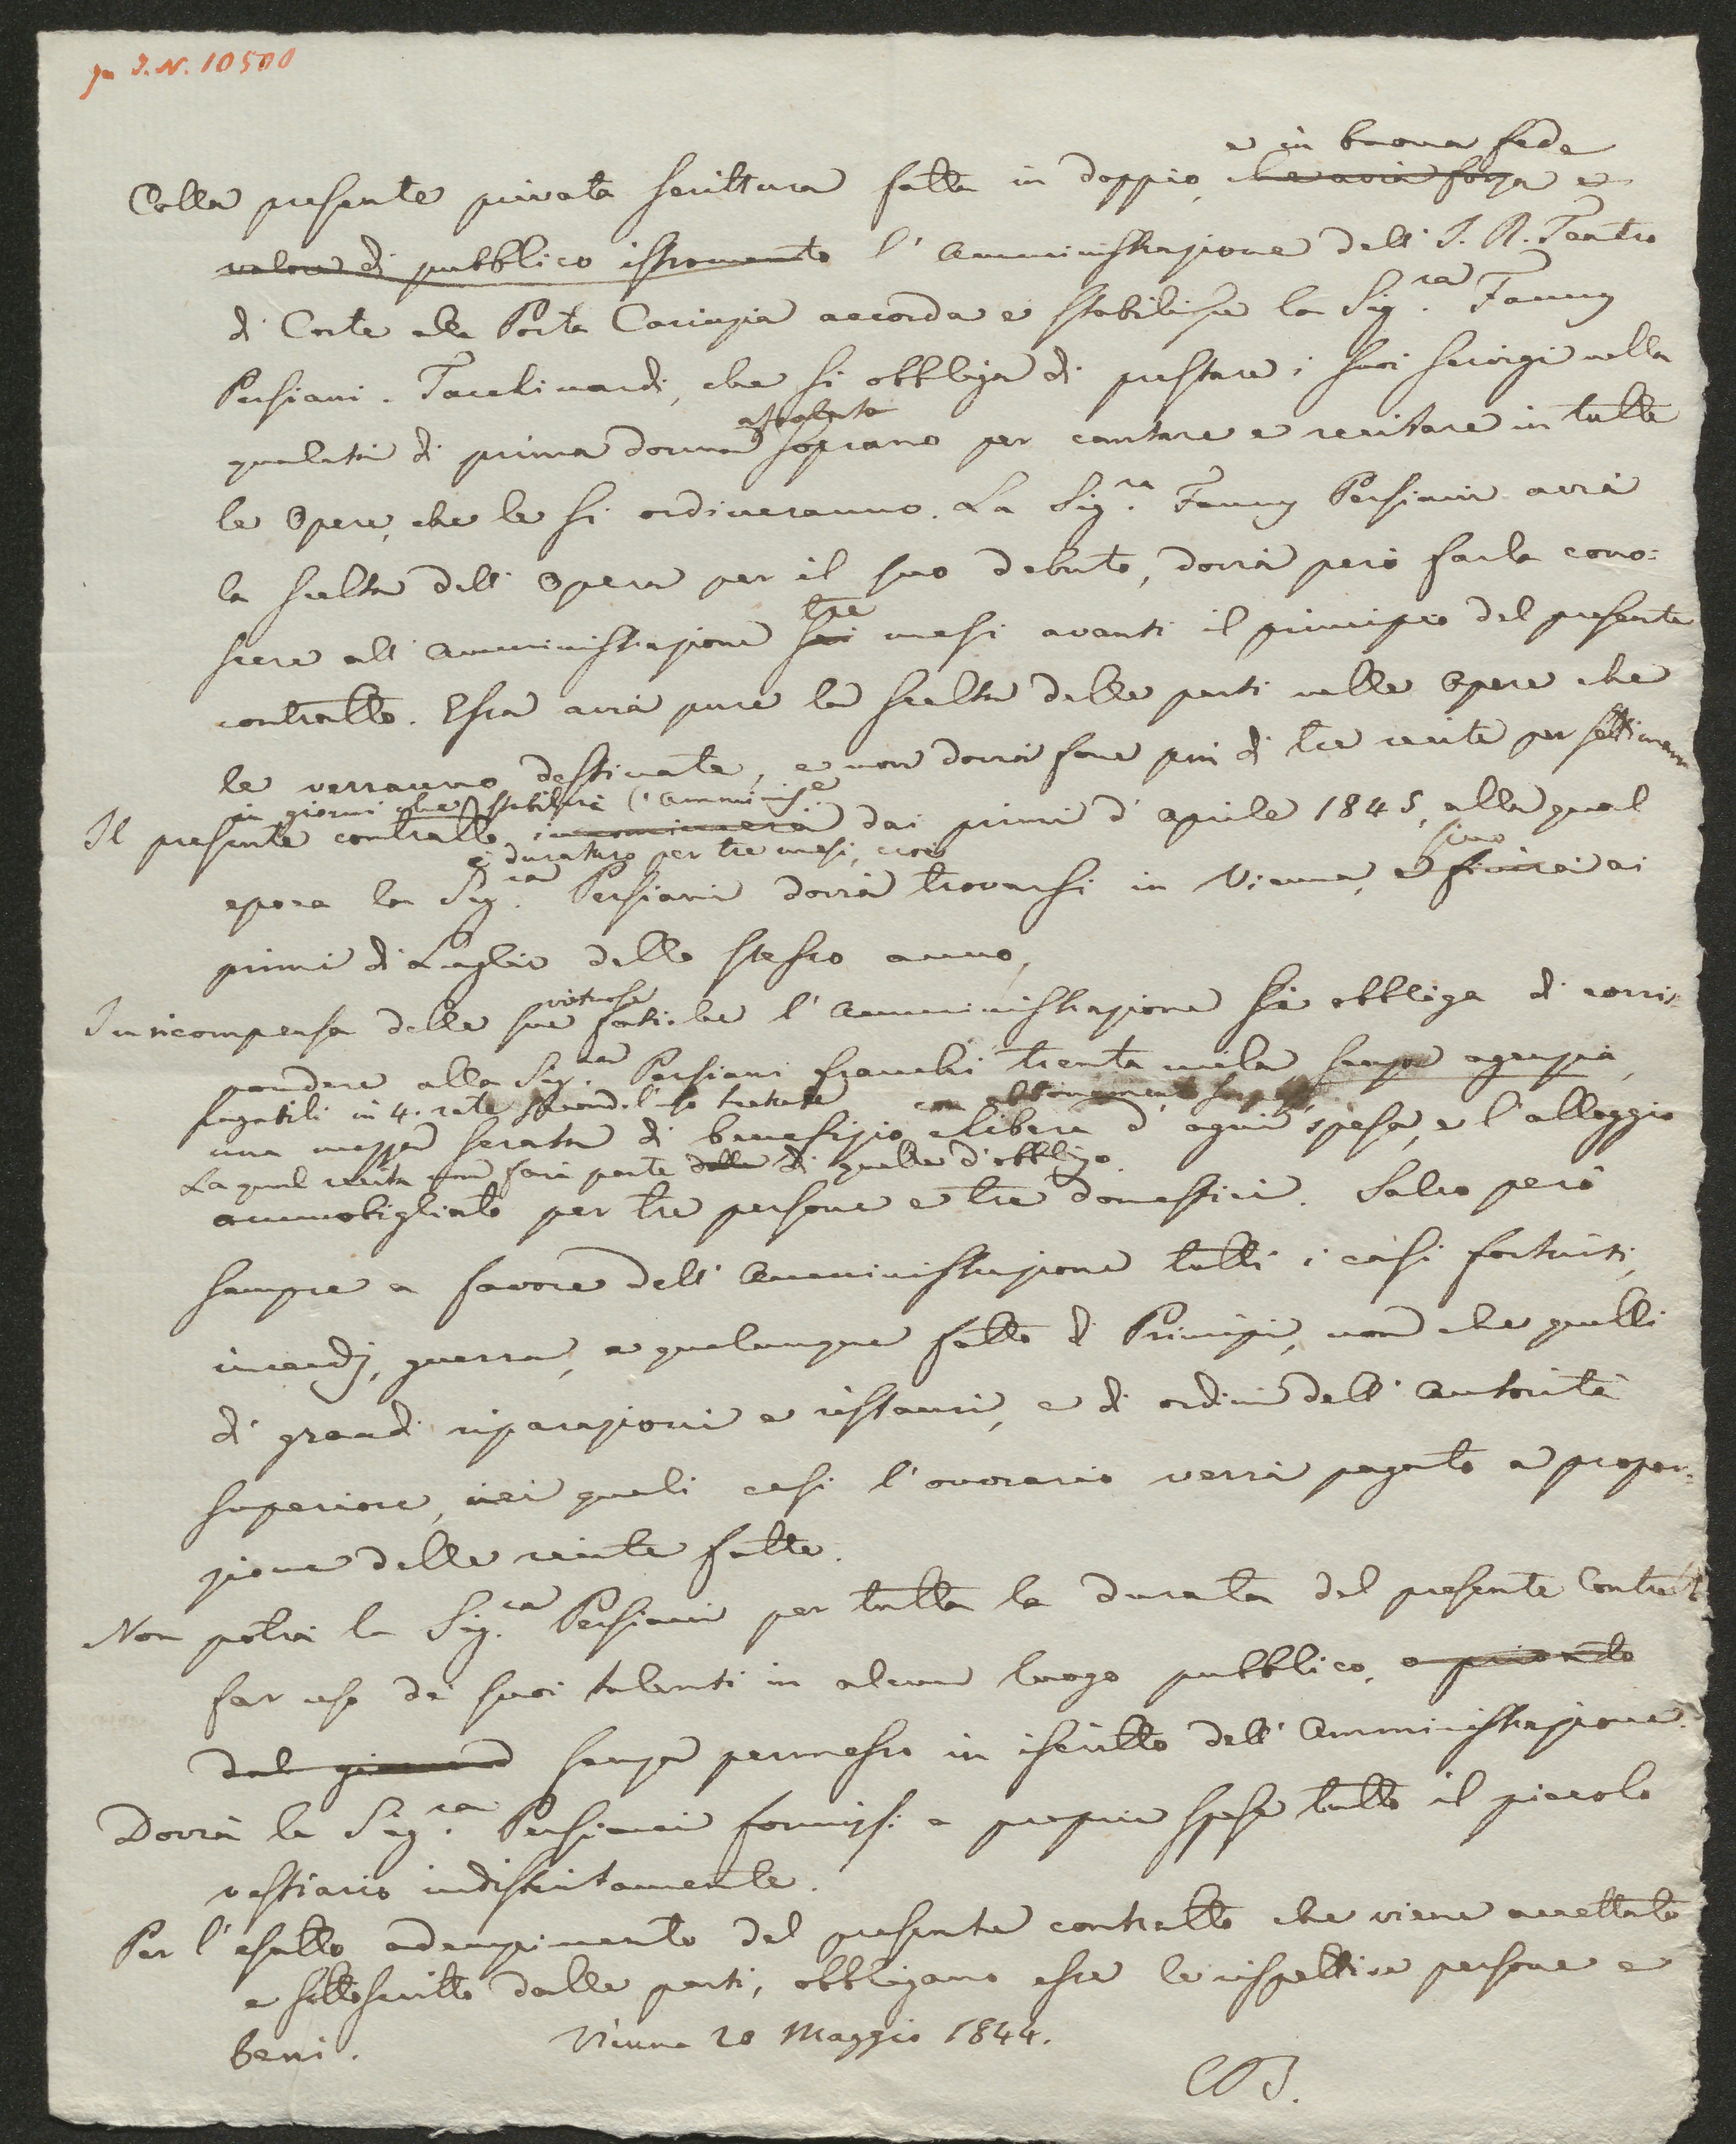 I. N. 10500
e in buona fede
Colla presente privata scrittura fatta in doppio, che avrà forza e
valore di pubblico istromento l'Amministrazione dell' I. R. Teatro
di Corte alla Porta Carinzia accorda e stabilisce la Sig.ra Fanny
Persiani-Tacchinardi, che si obbliga di prestare i suoi servigi nella
assoluta
qualità di prima donna soprano per cantare e recitare in tutte
le Opere, che le si ordineranno. La Sig.ra Fanny Persiani avrà
la scelta dell' Opera per il suo debutto, dovrà però farla cono=
tre
scere all' Amministrazione sei mesi avanti il principio del presente
contratto. Essa avrà pure la scelta delle parti nelle Opere che
le verranno destinate, e non dovrà fare più di tre recite per settimana
in giorni che stabilirà l'Amminis.e
Il presente contratto incomincerà dai primi d'aprile 1845, alla qual
è duraturo per tre mesi, cioè
sino
epoca la Sig.ra Persiani dovrà trovarsi in Vienna, e finirà ai
primi di Luglio dello stesso anno,
virtuose
In ricompensa delle sue fatiche l'Amministrazione si obbliga di corris=
pondere alla Sig.ra Persiani franchi trenta mila senza agenzia,
pagabili in 4. rate
una mezza serata di benefizio libera d'ogni spesa, e l'alloggio
La qual recita non farà parte delle di quelle d'obbligo.
ammobigliato per tre persone e tre domestici. Salvo però
sempre a favore dell' Amministrazione tutti i casi fortuiti,
incendj, guerra, e qualunque fatto di Principi, non che quelli
di grandi riparazioni e ristauri, e di ordini dell' Autorità
superiore, nei quali casi l'onorario verrà pagato a propor=
zione delle recite fatte.
Non potrà la Sig.ra Persiani per tutta la durata del presente Contratto
far uso de' suoi talenti in alcun luogo pubblico, o privato
dal giorno senza permesso in iscritto dell' Amministrazione.
Dovrà la Sig.ra Persiani fornirsi a proprie spese tutto il piccolo
vestiario indistintamente.
Per l'esatto adempimento del presente contratto che viene accettato
e sottoscritto dalle parti, obbligano esse le rispettive persone e
beni. Vienna 20 Maggio 1844.